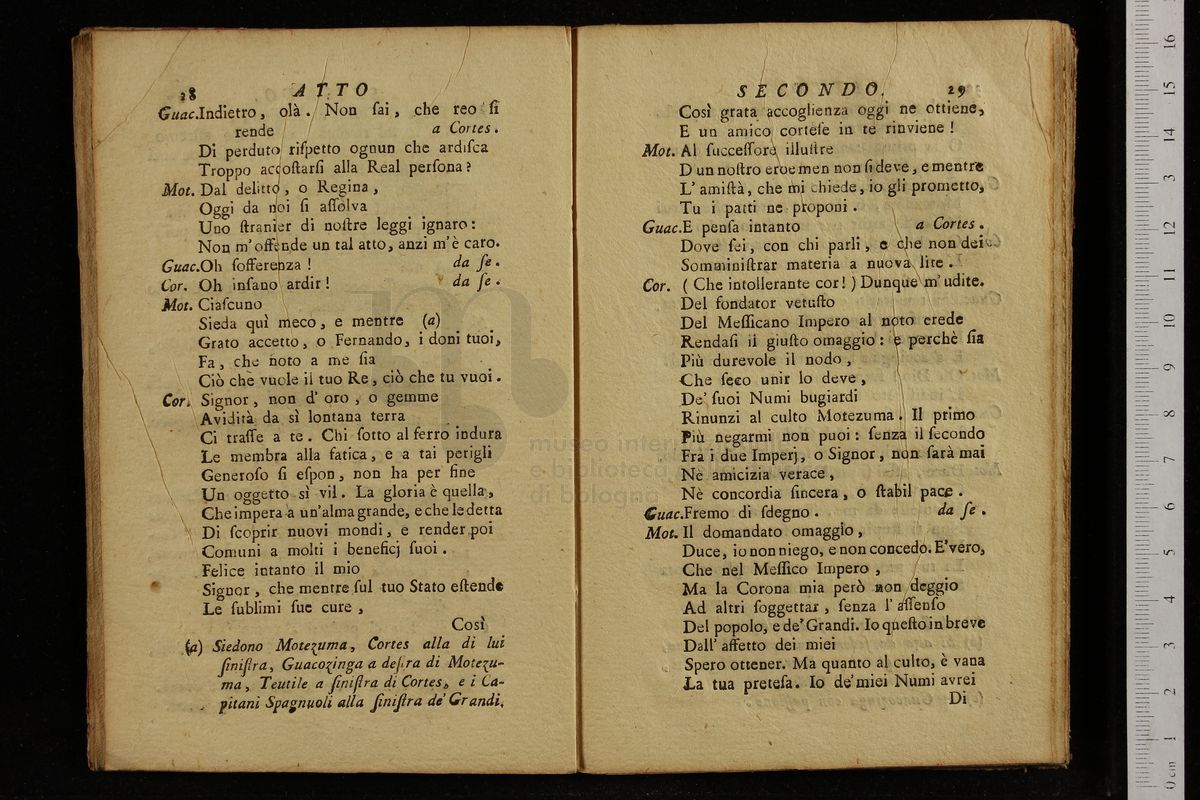 28 ATTO
Guac.Indietro, olà. Non ſai, che reo ſi
rende a Cortes.
Di perduto riſpetto ognun che ardiſca
Troppo accoſtarſi alla Real perſona?
Mot. Dal delitto, o Regina,
Oggi da noi ſi aſſolva
Uno ſtranier di noſtre leggi ignaro:
Non m'offende un tal atto, anzi m'è caro.
Guac.Oh ſofferenza! da ſe.
Cor. Oh inſano ardir! da ſe.
Mot. Ciaſcuno
Sieda quì meco, e mentre (a)
Grato accetto, o Fernando, i doni tuoi,
Fa, che noto a me ſia
Ciò che vuole il tuo Re, ciò che tu vuoi.
Cor. Signor, non d'oro, o gemme
Avidità da sì lontana terra
Ci traſſe a te. Chi ſotto al ferro indura
Le membra alla fatica, e a tai perigli
Generoſo ſi eſpon, non ha per fine
Un oggetto sì vil. La gloria è quella,
Che impera a un'alma grande, e che le detta
Di ſcoprir nuovi mondi, e render poi
Comuni a molti i beneficj ſuoi.
Felice intanto il mio
Signor, che mentre ſul tuo Stato eſtende
Le ſublimi ſue cure,
Così
(a) Siedono Motezuma, Cortes alla di lui
ſiniſtra, Guacozinga a deſtra di Motezu-
ma, Teutile a ſiniſtra di Cortes, e i Ca-
pitani Spagnuoli alla ſiniſtra de' Grandi.
SECONDO. 29
Così grata accoglienza oggi ne ottiene,
E un amico corteſe in te rinviene!
Mot. Al ſucceſſore illuſtre
D un noſtro eroe men non ſi deve, e mentre
L'amiſtà, che mi chiede, io gli prometto,
Tu i patti ne proponi.
Guac.E penſa intanto a Cortes.
Dove ſei, con chi parli, e che non dei
Somminiſtrar materia a nuova lite.
Cor. (Che intollerante cor!) Dunque m'udite.
Del fondator vetuſto
Del Meſſicano Impero al noto erede
Rendaſi il giuſto omaggio: e perchè ſia
Più durevole il nodo,
Che ſeco unir lo deve,
De' ſuoi Numi bugiardi
Rinunzi al culto Motezuma. Il primo
Più negarmi non puoi: ſenza il ſecondo
Fra i due Imperj, o Signor, non ſarà mai
Nè amicizia verace,
Nè concordia ſincera, o ſtabil pace.
Guac.Fremo di ſdegno. da ſe.
Mot. Il domandato omaggio,
Duce, io non niego, e non concedo. E'vero,
Che nel Meſſico Impero,
Ma la Corona mia però non deggio
Ad altri ſoggettar, ſenza l'aſſenſo
Del popolo, e de' Grandi. Io queſto in breve
Dall'affetto dei miei
Spero ottener. Ma quanto al culto, è vana
La tua preteſa. Io de' miei Numi avrei
Di
museo inter
e biblioteca
di bologna
0 cm 1 2 3 4 5 6 7 8 9 10 11 12 13 14 15 16